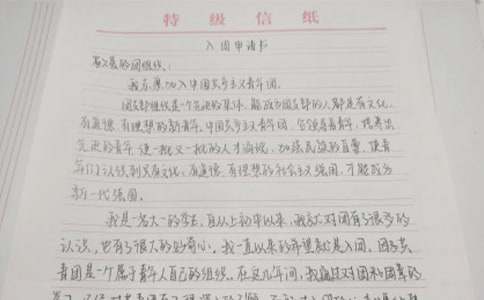 特级信纸
入团申请书
敬爱的团组织：
我志愿加入中国共产主义青年团。
团支部组织是一个先进的集体，能成为团支部的人都是有文化、
有道德、有理想的新青年。中国共产主义青年团，它领导着青年，培养出
先进的青年，使一批又一批的人才涌现，加强民族的自量，使青
年们认识到只有文化、有道德、有理想的社会主义强国，才能成为
新一代强国。
我是一名大一的学生，自从上初中以来，我就对团有了很多的
认识，也有了很大的好奇心。我一直以来的希望就是入团。团
青团是一个属于青年人自己的组织。在这几年间，我通过对团和团章的